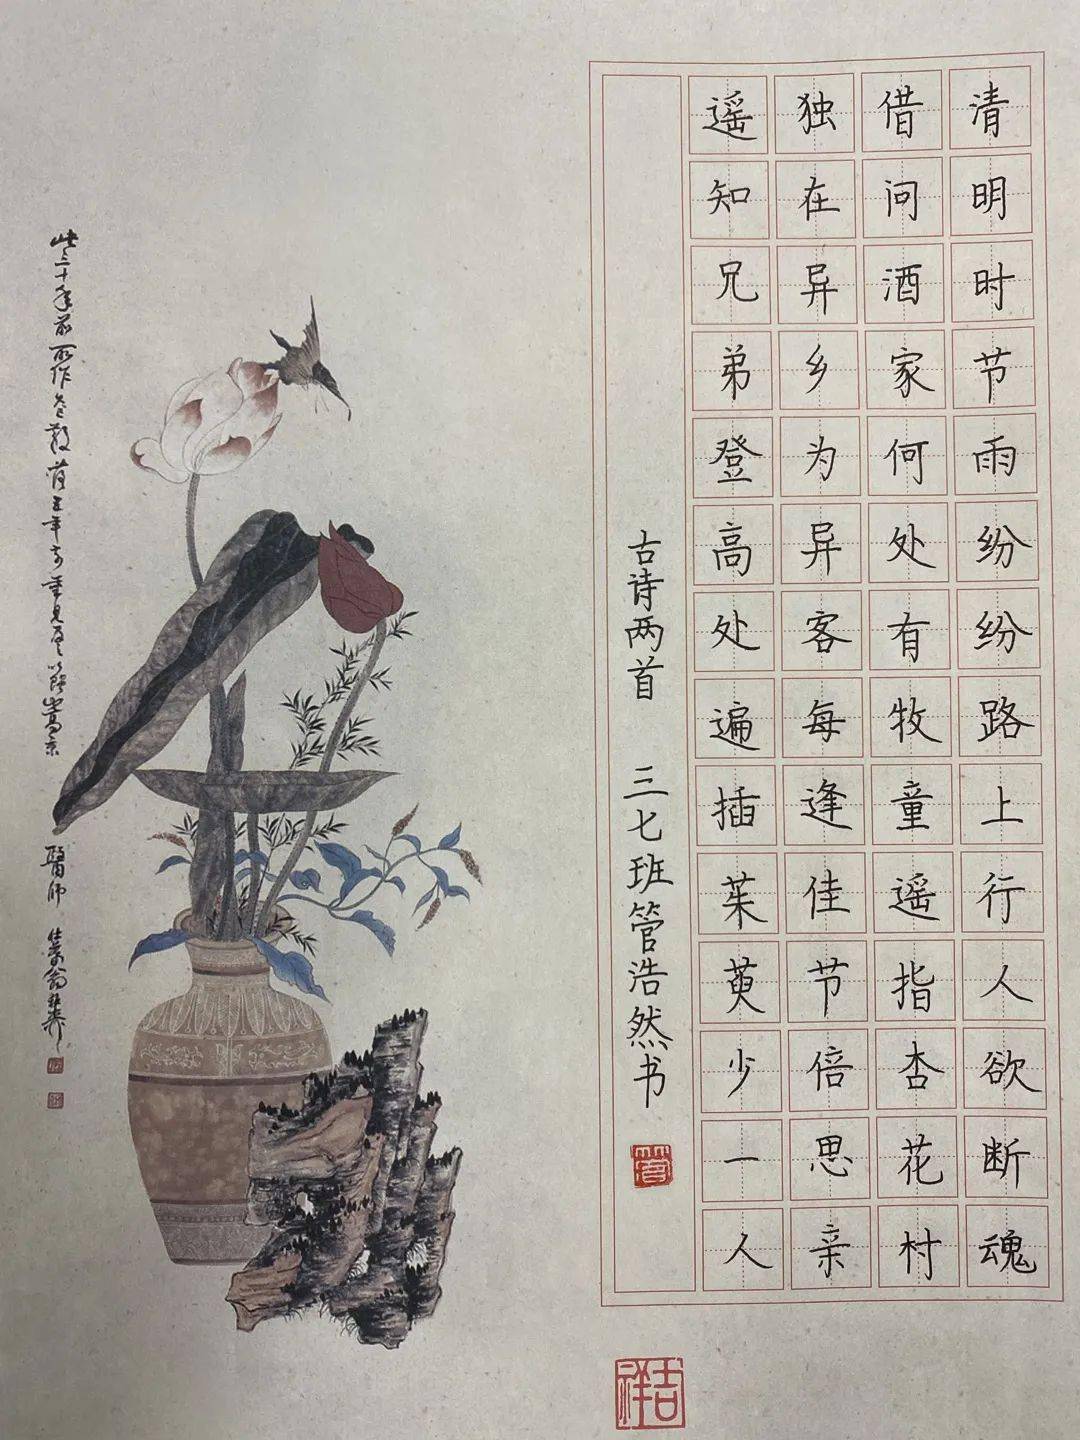 清明时节雨纷纷路上行人欲断魂
借问酒家何处有牧童遥指杏花村
独在异乡为异客每逢佳节倍思亲
遥知兄弟登高处遍插茱萸少一人
古诗两首 三七班管浩然书
吉祥
此三十年前所作
醫师